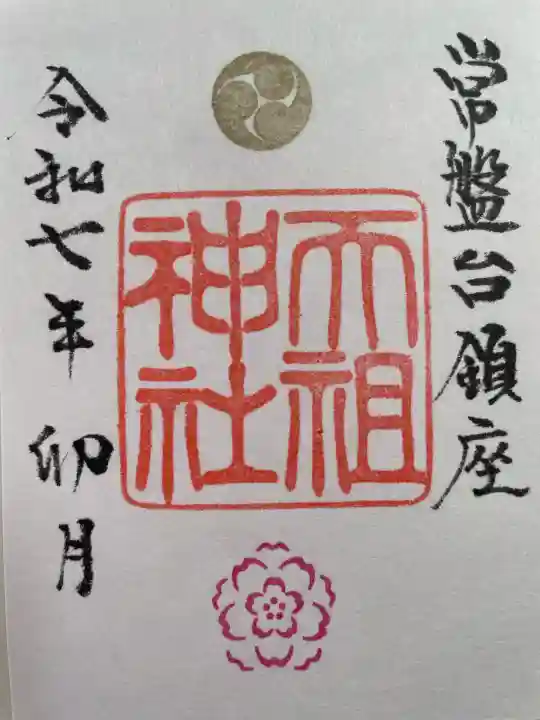 常盤台鎮座
天祖
神社
令和七年 卯月